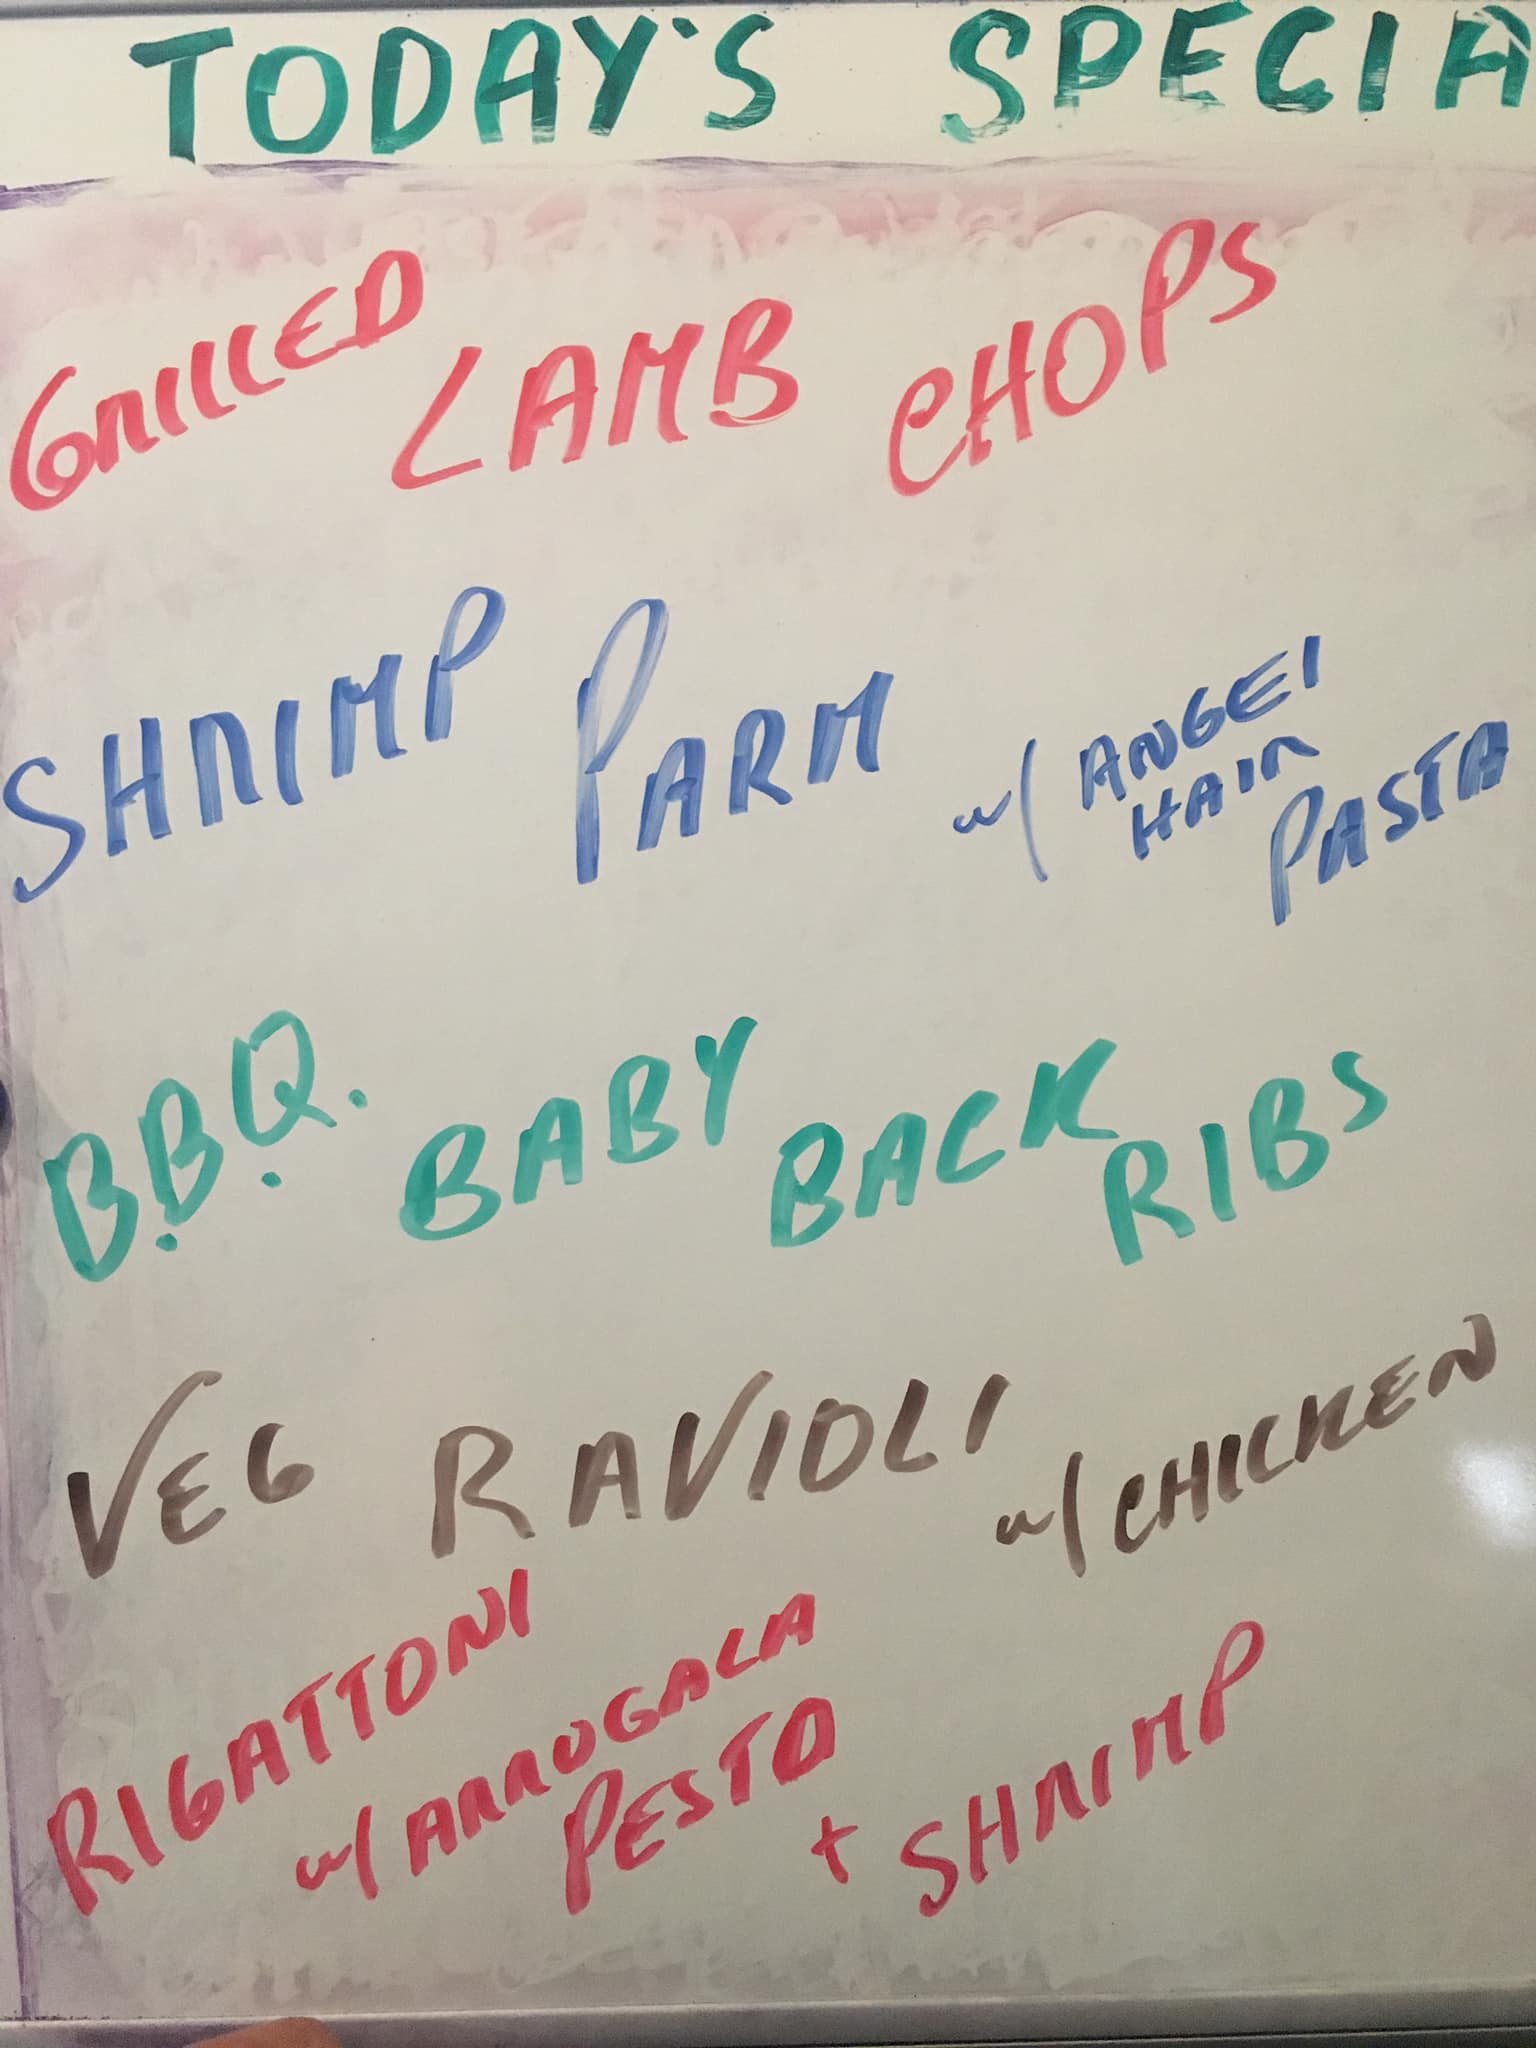 TODAY'S SPECIA
GRILLED LAMB CHOPS
SHRIMP PARM w/ ANGEl
HAIR
PASTA
B.B.Q. BABY BACK RIBS
VEG RAVIOLI w/ CHICKEN
RIGATTONI
w/ ARROGALA
PESTO + SHRIMP